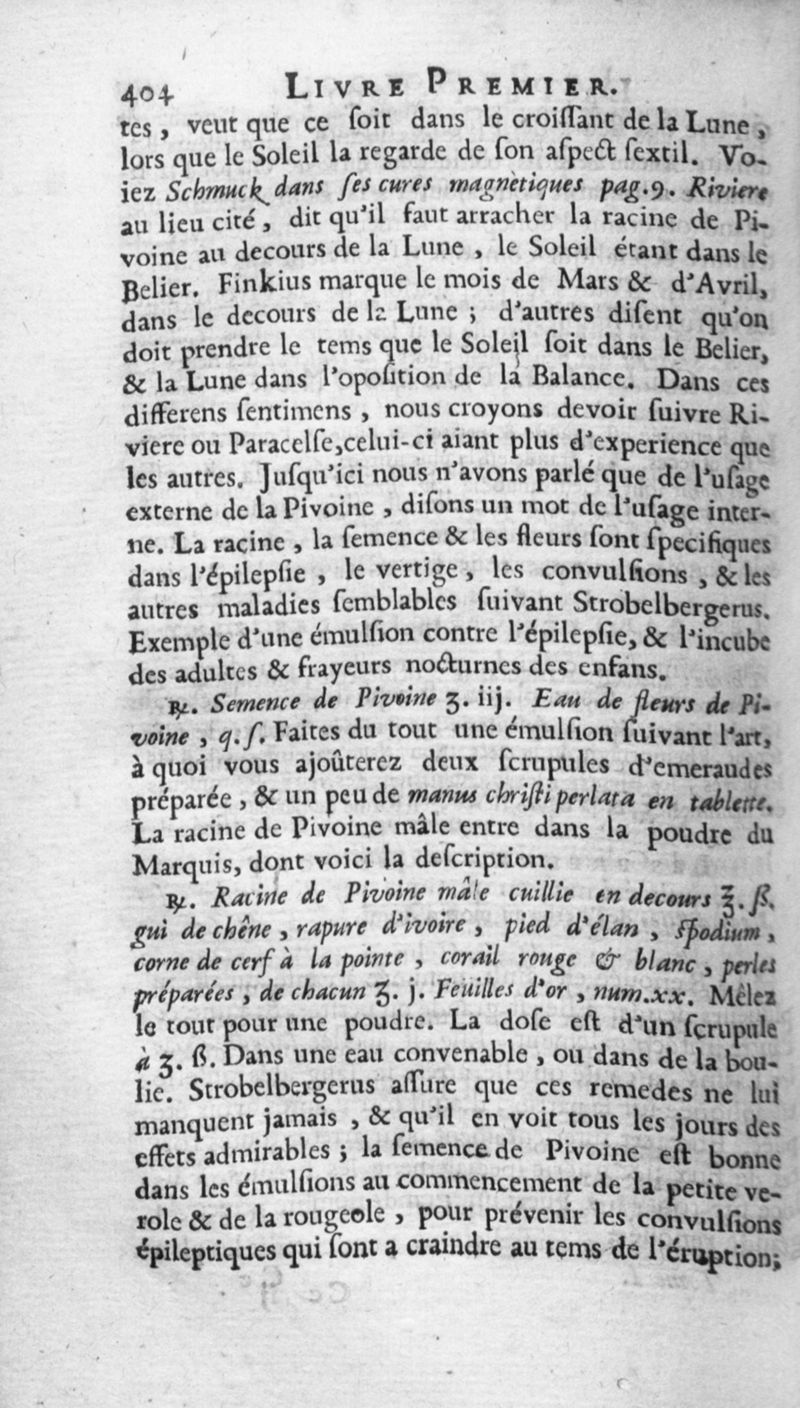 404 LIVRE PREMIER.
tes, veut que ce ſoit dans le croiſſant de la Lune,
lors que le Soleil la regarde de ſon aſpect ſextil. Vo-
iez Schmuck dans ſes cures magnetiques pag.9. Riviere
au lieu cité, dit qu'il faut arracher la racine de Pi-
voine au decours de la Lune, le Soleil étant dans le
Belier. Finkius marque le mois de Mars & d'Avril,
dans le decours de la Lune; d'autres diſent qu'on
doit prendre le tems que le Soleil ſoit dans le Belier,
& la Lune dans l'opoſition de la Balance. Dans ces
differens ſentimens, nous croyons devoir ſuivre Ri-
viere ou Paracelſe, celui-ci aiant plus d'experience que
les autres. Juſqu'ici nous n'avons parlé que de l'uſage
externe de la Pivoine, diſons un mot de l'uſage inter-
ne. La racine, la ſemence & les fleurs ſont ſpecifiques
dans l'épilepſie, le vertige, les convulſions, & les
autres maladies ſemblables ſuivant Strobelbergerus.
Exemple d'une émulſion contre l'épilepſie, & l'incube
des adultes & frayeurs nocturnes des enfans.
℞. Semence de Pivoine ʒ. iij. Eau de fleurs de Pi-
voine, q. ſ. Faites du tout une émulſion ſuivant l'art,
à quoi vous ajoûterez deux ſcrupules d'emeraudes
préparée, & un peu de manus chriſti perlata en tablette.
La racine de Pivoine mâle entre dans la poudre du
Marquis, dont voici la deſcription.
℞. Racine de Pivoine mâle cuillie en decours ℥. ß.
gui de chêne, rapure d'ivoire, pied d'élan, ſpodium,
corne de cerf à la pointe, corail rouge & blanc, perles
préparées, de chacun ʒ. j. Feuilles d'or, num.xx. Mêlez
le tout pour une poudre. La doſe eſt d'un ſcrupule
à ʒ. ß. Dans une eau convenable, ou dans de la bou-
lie. Strobelbergerus aſſure que ces remedes ne lui
manquent jamais, & qu'il en voit tous les jours des
effets admirables; la ſemence de Pivoine eſt bonne
dans les émulſions au commencement de la petite ve-
role & de la rougeole, pour prévenir les convulſions
épileptiques qui ſont a craindre au tems de l'éruption;